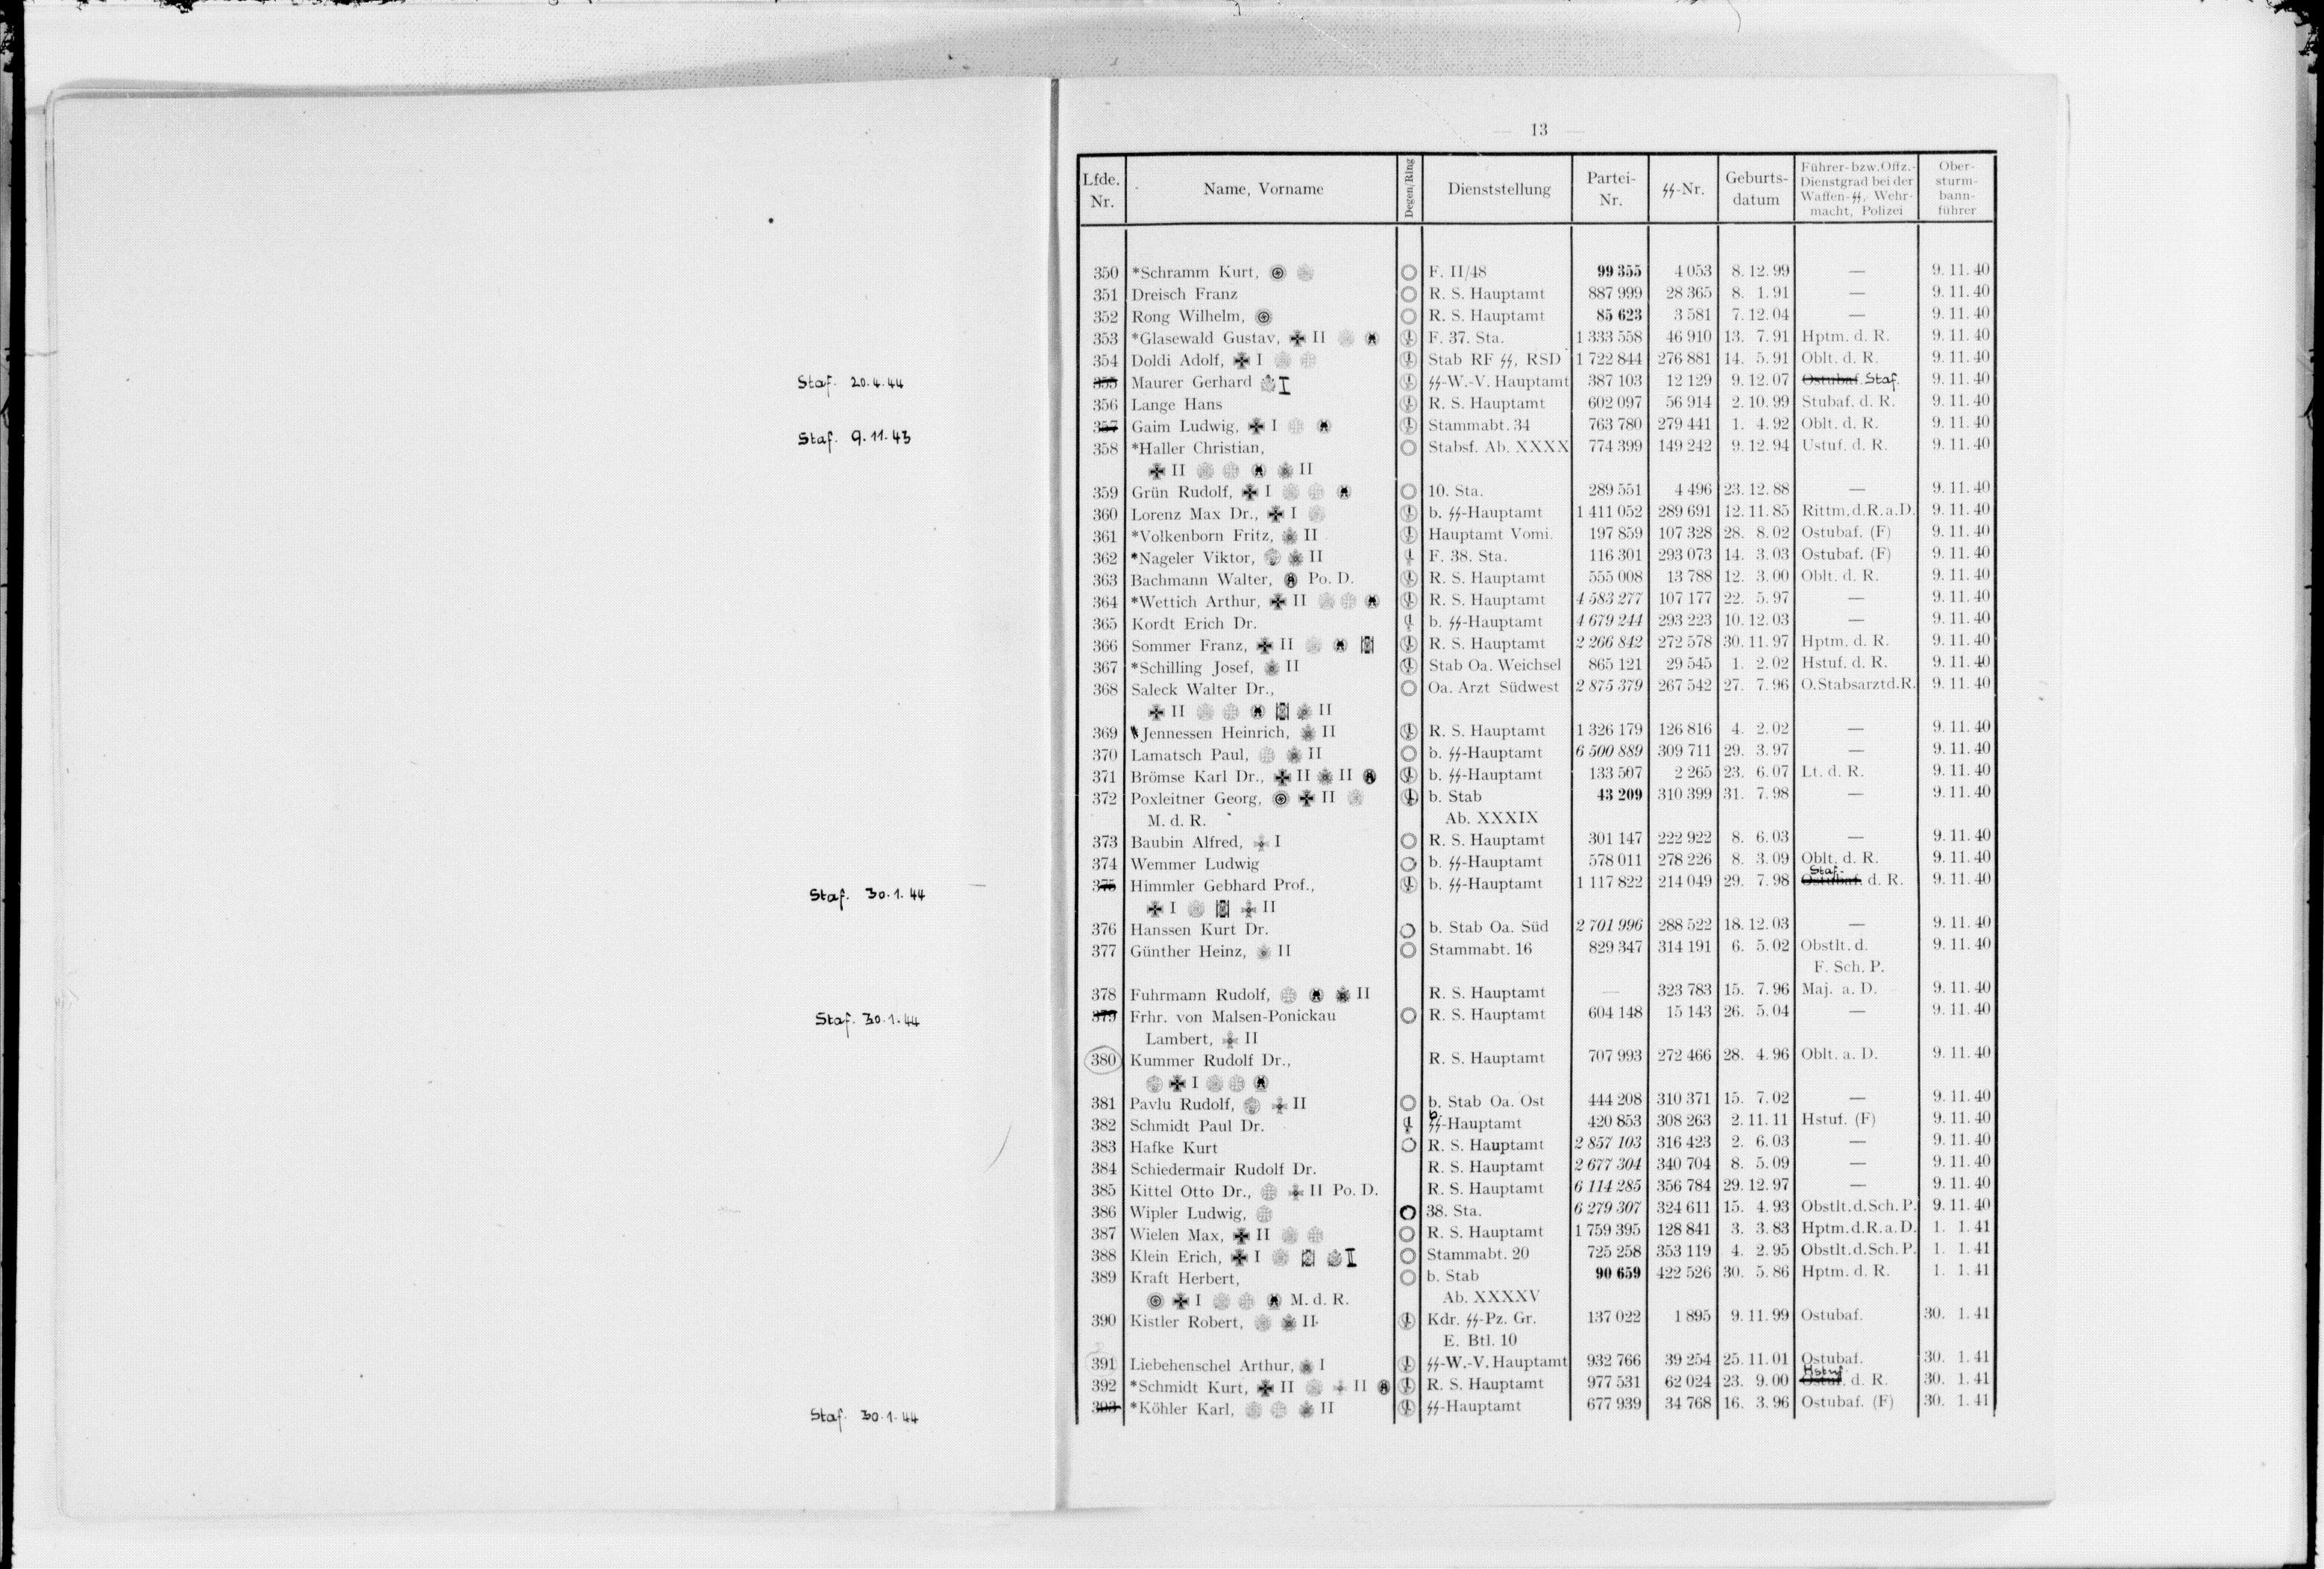 Staf. 20.4.44
Staf. 9.11.43
Staf. 30.1.44
Staf. 30.1.44
Staf. 30.1.44
— 13 —
Lfde. Nr. Name, Vorname Degen/Ring Dienststellung Partei-Nr. ϟϟ-Nr. Geburts-datum Führer-bzw.Offz.-Dienstgrad bei der Waffen-ϟϟ, Wehr-macht, Polizei Ober-sturm-bann-führer
350 *Schramm Kurt, F. II/48 99 355 4 053 8. 12. 99 — 9. 11. 40
351 Dreisch Franz R. S. Hauptamt 887 999 28 365 8. 1. 91 — 9. 11. 40
352 Rong Wilhelm, R. S. Hauptamt 85 623 3 581 7. 12. 04 — 9. 11. 40
353 *Glasewald Gustav, II F. 37. Sta. 1 333 558 46 910 13. 7. 91 Hptm. d. R. 9. 11. 40
354 Doldi Adolf, I Stab RF ϟϟ, RSD 1 722 844 276 881 14. 5. 91 Oblt. d. R. 9. 11. 40
355 Maurer Gerhard I ϟϟ-W.-V. Hauptamt 387 103 12 129 9. 12. 07 Ostubaf. Staf. 9. 11. 40
356 Lange Hans R. S. Hauptamt 602 097 56 914 2. 10. 99 Stubaf. d. R. 9. 11. 40
357 Gaim Ludwig, I Stammabt. 34 763 780 279 441 1. 4. 92 Oblt. d. R. 9. 11. 40
358 *Haller Christian, Stabsf. Ab. XXXX 774 399 149 242 9. 12. 94 Ustuf. d. R. 9. 11. 40
II II
359 Grün Rudolf, I 10. Sta. 289 551 4 496 23. 12. 88 — 9. 11. 40
360 Lorenz Max Dr., I b. ϟϟ-Hauptamt 1 411 052 289 691 12. 11. 85 Rittm.d.R.a.D. 9. 11. 40
361 *Volkenborn Fritz, II Hauptamt Vomi. 197 859 107 328 28. 8. 02 Ostubaf. (F) 9. 11. 40
362 *Nageler Viktor, II F. 38. Sta. 116 301 293 073 14. 3. 03 Ostubaf. (F) 9. 11. 40
363 Bachmann Walter, Po. D. R. S. Hauptamt 555 008 13 788 12. 3. 00 Oblt. d. R. 9. 11. 40
364 *Wettich Arthur, II R. S. Hauptamt 4 583 277 107 177 22. 5. 97 — 9. 11. 40
365 Kordt Erich Dr. b. ϟϟ-Hauptamt 4 679 244 293 223 10. 12. 03 — 9. 11. 40
366 Sommer Franz, II R. S. Hauptamt 2 266 842 272 578 30. 11. 97 Hptm. d. R. 9. 11. 40
367 *Schilling Josef, II Stab Oa. Weichsel 865 121 29 545 1. 2. 02 Hstuf. d. R. 9. 11. 40
368 Saleck Walter Dr., Oa. Arzt Südwest 2 875 379 267 542 27. 7. 96 O.Stabsarztd.R. 9. 11. 40
II II
369 *Jennessen Heinrich, II R. S. Hauptamt 1 326 179 126 816 4. 2. 02 — 9. 11. 40
370 Lamatsch Paul, II b. ϟϟ-Hauptamt 6 500 889 309 711 29. 3. 97 — 9. 11. 40
371 Brömse Karl Dr., II II b. ϟϟ-Hauptamt 133 507 2 265 23. 6. 07 Lt. d. R. 9. 11. 40
372 Poxleitner Georg, II b. Stab 43 209 310 399 31. 7. 98 — 9. 11. 40
M. d. R. Ab. XXXIX
373 Baubin Alfred, I R. S. Hauptamt 301 147 222 922 8. 6. 03 — 9. 11. 40
374 Wemmer Ludwig b. ϟϟ-Hauptamt 578 011 278 226 8. 3. 09 Oblt. d. R. 9. 11. 40
375 Himmler Gebhard Prof., b. ϟϟ-Hauptamt 1 117 822 214 049 29. 7. 98 Staf. Ostubaf. d. R. 9. 11. 40
I II
376 Hanssen Kurt Dr. b. Stab Oa. Süd 2 701 996 288 522 18. 12. 03 — 9. 11. 40
377 Günther Heinz, II Stammabt. 16 829 347 314 191 6. 5. 02 Obstlt. d. 9. 11. 40
F. Sch. P.
378 Fuhrmann Rudolf, II R. S. Hauptamt — 323 783 15. 7. 96 Maj. a. D. 9. 11. 40
379 Frhr. von Malsen-Ponickau R. S. Hauptamt 604 148 15 143 26. 5. 04 — 9. 11. 40
Lambert, II
380 Kummer Rudolf Dr., R. S. Hauptamt 707 993 272 466 28. 4. 96 Oblt. a. D. 9. 11. 40
I
381 Pavlu Rudolf, II b. Stab Oa. Ost 444 208 310 371 15. 7. 02 — 9. 11. 40
382 Schmidt Paul Dr. b. ϟϟ-Hauptamt 420 853 308 263 2. 11. 11 Hstuf. (F) 9. 11. 40
383 Hafke Kurt R. S. Hauptamt 2 857 103 316 423 2. 6. 03 — 9. 11. 40
384 Schiedermair Rudolf Dr. R. S. Hauptamt 2 677 304 340 704 8. 5. 09 — 9. 11. 40
385 Kittel Otto Dr., II Po. D. R. S. Hauptamt 6 114 285 356 784 29. 12. 97 — 9. 11. 40
386 Wipler Ludwig, 38. Sta. 6 279 307 324 611 15. 4. 93 Obstlt.d.Sch.P. 9. 11. 40
387 Wielen Max, II R. S. Hauptamt 1 759 395 128 841 3. 3. 83 Hptm.d.R.a.D. 1. 1. 41
388 Klein Erich, I I Stammabt. 20 725 258 353 119 4. 2. 95 Obstlt.d.Sch.P. 1. 1. 41
389 Kraft Herbert, b. Stab 90 659 422 526 30. 5. 86 Hptm. d. R. 1. 1. 41
I M. d. R. Ab. XXXXV
390 Kistler Robert, II Kdr. ϟϟ-Pz. Gr. 137 022 1 895 9. 11. 99 Ostubaf. 30. 1. 41
E. Btl. 10
391 Liebehenschel Arthur, I ϟϟ-W.-V. Hauptamt 932 766 39 254 25. 11. 01 Ostubaf. 30. 1. 41
392 *Schmidt Kurt, II II R. S. Hauptamt 977 531 62 024 23. 9. 00 Hstuf Ostuf. d. R. 30. 1. 41
393 *Köhler Karl, II ϟϟ-Hauptamt 677 939 34 768 16. 3. 96 Ostubaf. (F) 30. 1. 41